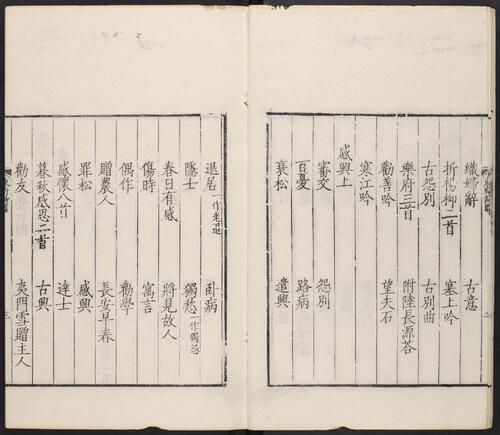 織婦辭　古意
折楊柳二首　塞上吟
古怨別　古別曲
樂府三首　附陸長源荅
勸善吟　望夫石
寒江吟
感興上
審交　怨別
百憂　路病
衰松　遣興
退居一作老退　臥病
隱士　獨愁一作獨怨
春日有感　將見故人
傷時　寓言
偶作　勸學
贈農人　長安早春
罪松　感興
感懷八首　達士
暮秋感思二首　古興
勸友　夷門雪贈主人